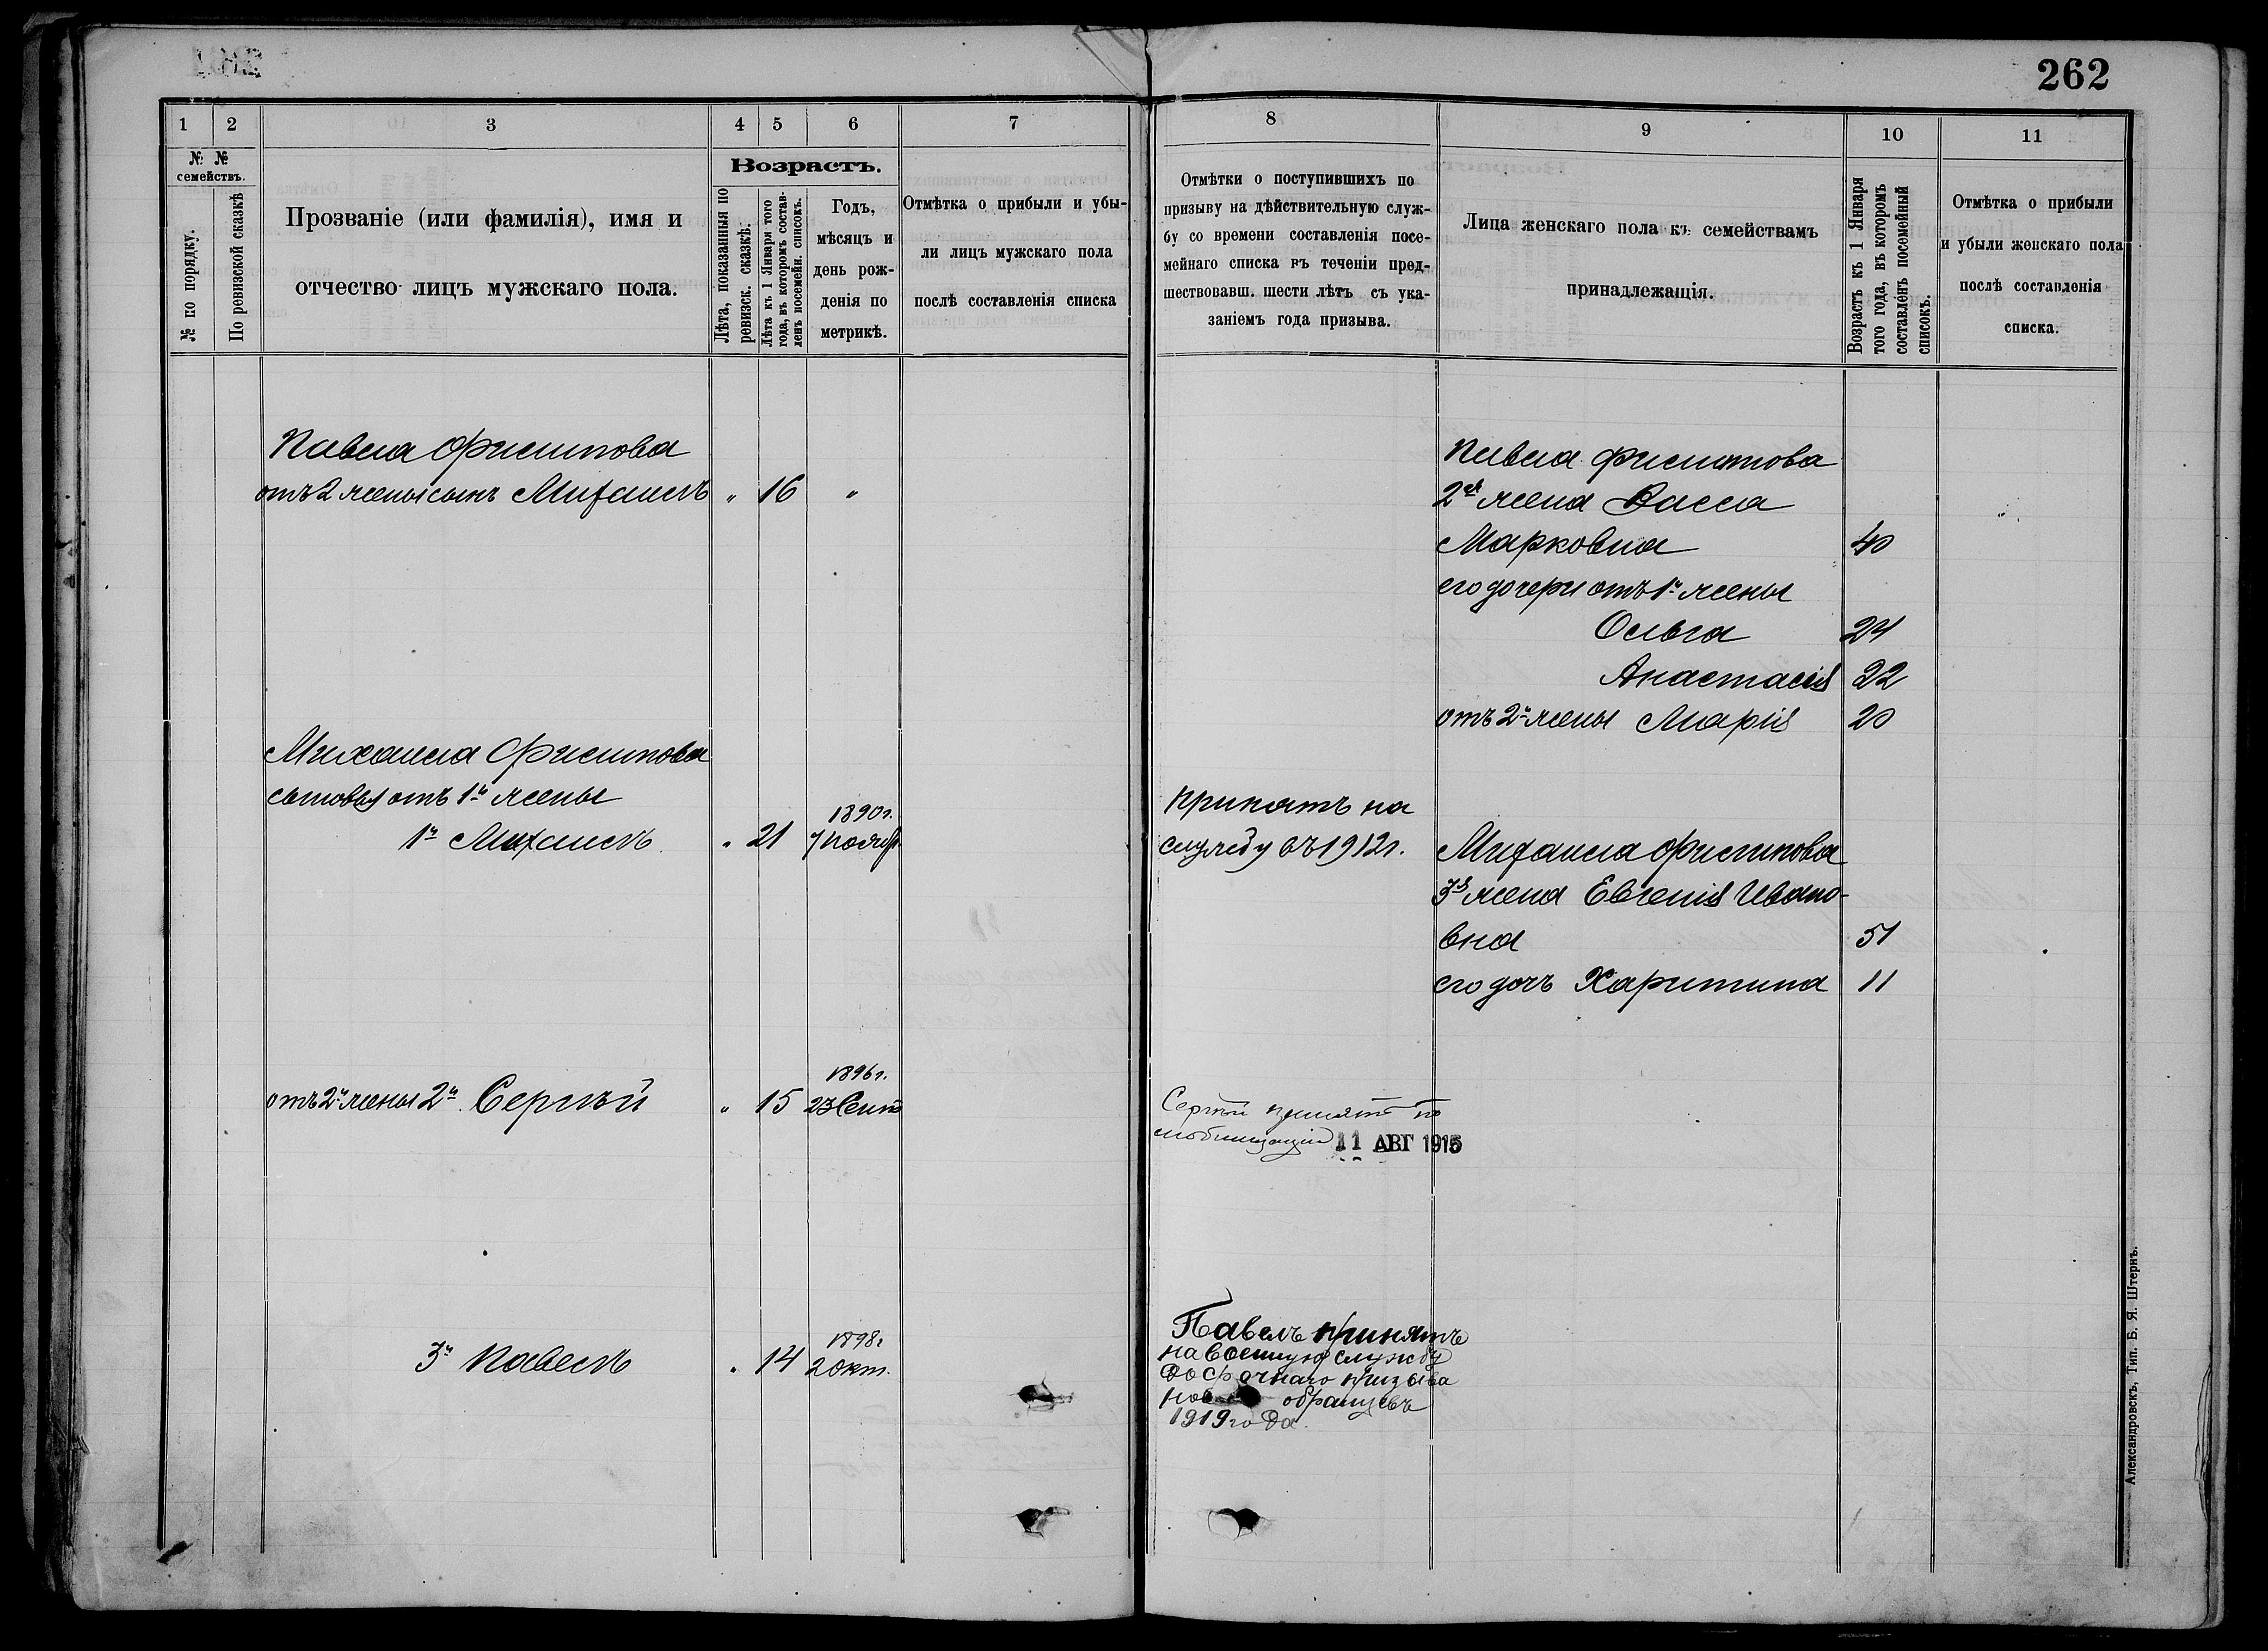 262
1
2
3
4
5
6
7
№ №
семействъ.
№ по порядку.
По ревизской сказкѣ
Прозваніе (или фамилія), имя и
отчество лицъ мужскаго пола.
Возрастъ.
Лѣта, показанныя по
ревизск. сказкѣ.
Лѣта къ 1 Января того
года, въ которомъ состав-
ленъ посемейн. списокъ.
Годъ,
мѣсяцъ и
день рож-
денія по
метрикѣ.
Отмѣтка о прибыли и убы-
ли лицъ мужскаго пола
послѣ составленія списка
Павла Филипова
отъ 2 жены сынъ Михаилъ " 16 "
Михаила Филипова
сыновья отъ 1й жены
1890г.
1й Михаилъ " 21 7 Ноябр
1896г.
отъ 2й жены 2й Сергѣй " 15 23 Сент
1898г
3й Павелъ " 14 2 Окт.
8
9
10
11
Отмѣтки о поступившихъ по
призыву на дѣйствительную служ-
бу со времени составленія посе-
мейнаго списка въ теченіи пред-
шествовавш. шести лѣтъ съ ука-
заніемъ года призыва.
Лица женскаго пола къ семействамъ
принадлежащія.
Возрастъ къ 1 Января
того года, въ которомъ
составленъ посемейный
списокъ.
Отмѣтка о прибыли
и убыли женскаго пола
послѣ составленія
списка.
Павла Филипова
2ая жена Васса
Марковна 40
его дочери отъ 1й жены
Ольга 24
Анастасія 22
отъ 2й жены Марія 20
принятъ на
службу въ 1912г.
Михаила Филипова
3я жена Евгенія Ивано-
вна 51
его дочь Харитина 11
Сергѣй принятъ по
мобилизаціи 11 АВГ 1915
Павелъ принятъ
на военную службу
досрочнаго призыва
нов обранцевъ
1919 года.
Александровскъ, Тип. Б. Я. Штернъ.